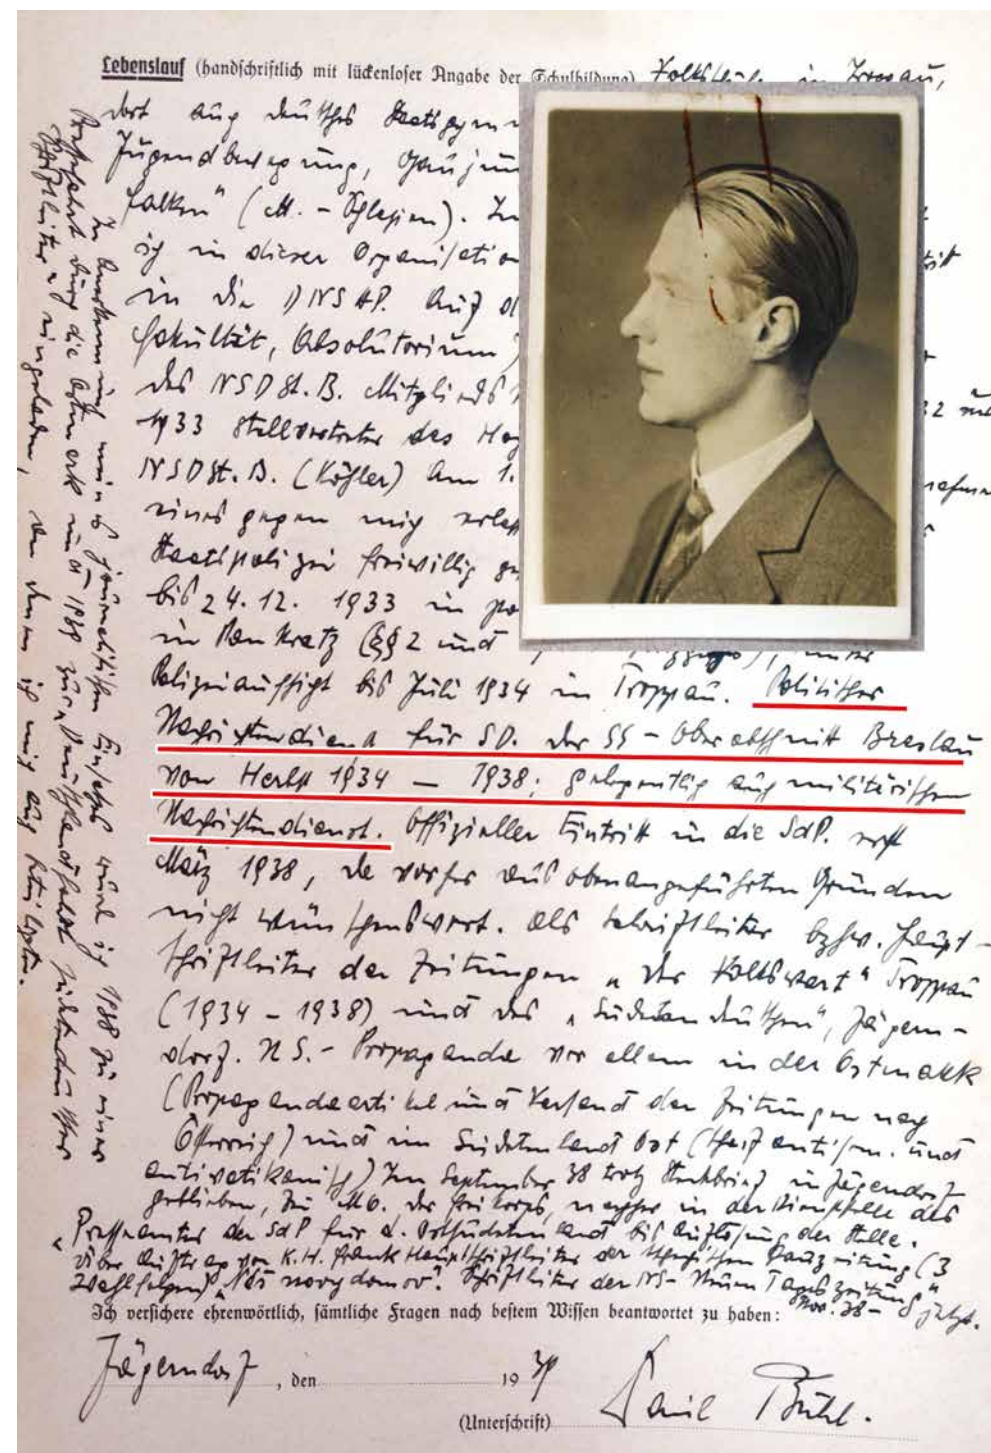 Lebenslauf (handschriftlich mit lückenloser Angabe der Schulbildung) Volksschule in Troppau,
dort auch deutsches Staatsgymn
Jugendbewegung,
falken" (M. - Schlesien). In
ich in dieser Organisatio
in die DNSAP. Auf d
Fakultät, Absolutorium)
des NSDSt.B. Mitglieds
32 mit
1933 Stellvertreter des
NSDSt.B. (Köhler) Am 1.
eines gegen mich
Staatspolizei freiwillig
bis 24.12. 1933 in
in Pankratz (§§ 2 und unter
Polizeiaufsicht bis Juli 1934 in Troppau. Politischer
Nachrichtendienst für SD. der SS - Oberabschnitt Breslau
vom Herbst 1934 – 1938; gelegentlich auch militärischen
Nachrichtendienst. Offizieller Eintritt in die SdP. erst
März 1938, da vorher aus obenangeführten Gründen
nicht wünschenswert. Als Schriftleiter bzhw. Haupt-
schriftleiter der Zeitungen „Der Volkswart" Troppau
(1934 – 1938) und des „Sudetendeutschen", Jägern-
dorf. N.S. - Propaganda vor allem in der Ostmark
(Propagandaartikel und Versand der Zeitungen nach
Österreich) und im Sudetenland Ost (scharf antisem. und
antivatikanisch) Im September 38 trotz Steckbrief in Jägerndorf
geblieben, der Freikorps, nachher in der des
Presseamtes der SdP für d. Ostsudetenland bis Auflösung der Stelle.
Über Auftrag von K.H. Frank Hauptschriftleiter der tschechischen (3
Wahlfolgen) „Náš nový domov". Schriftleiter der NS- Neuen Tageszeitung"
Nov. 38 – jetzt.
In Anerkennung meines journalistischen Einsatzes wurde ich 1938 zu einer
Pressefahrt durch die Ostmark und 1938 zur „Deutschlandfahrt sudetendeutscher
Schriftleiter" eingeladen, an denen ich mich auch beteiligte.
Ich versichere ehrenwörtlich, sämtliche Fragen nach bestem Wissen beantwortet zu haben:
Jägerndorf, den 19 39
(Unterschrift) Bühl.